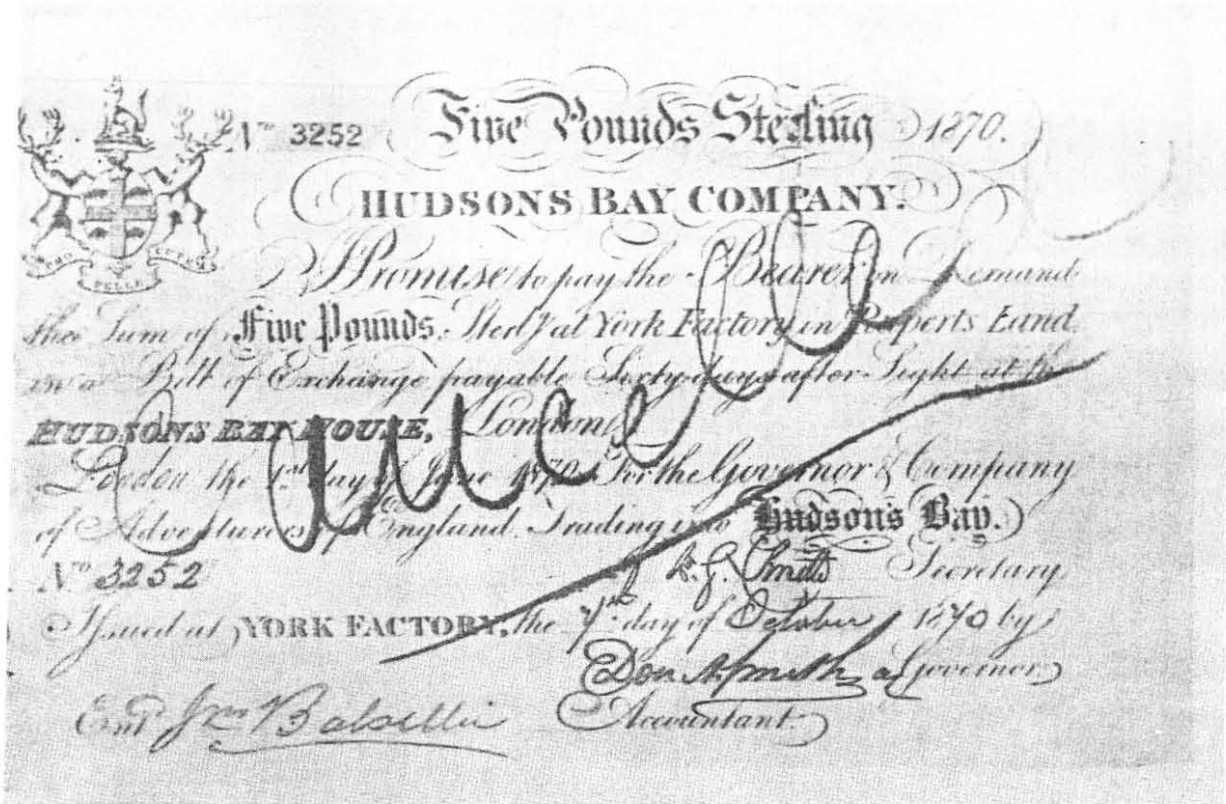 No 3252 Five Pounds Sterling 1870.
HUDSONS BAY COMPANY.
PRO PELLE CUTEM
I Promise to pay the Bearer on Demand
the Sum of Five Pounds Sterg at York Factory in Ruperts Land
in a Bill of Exchange payable Sixty days after Sight at the
HUDSONS BAY HOUSE, London
London the 1st day of June 1870 For the Governor & Company
of Adventurers of England Trading into Hudson's Bay.
No 3252
W. G. Smith Secretary
Issued at YORK FACTORY, the 7th day of October 1870 by
Don A Smith a Governor
Entd Jm Balsillie Accountant.
Cancelled